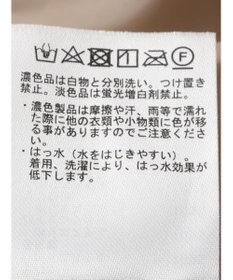 濃色品は白物と分別洗い。つけ置き
禁止。淡色品は蛍光増白剤禁止。
・濃色製品は摩擦や汗、雨等で濡れ
た際に他の衣類や小物類に色が移
る事がありますのでご注意くださ
い。
・はっ水（水をはじきやすい）。
着用、洗濯により、はっ水効果が
低下します。